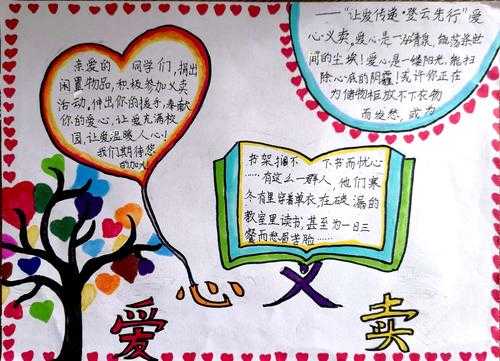 亲爱的 同学们，捐出
闲置物品，积极参加义卖
活动，伸出你的援手，奉献
你的爱心，让爱充满校
园，让爱温暖人心！
我们期待您
的加入
——“让爱传递·登云先行”爱
心义卖。爱心是一泓清泉，能荡涤世
间的尘埃！爱心是一缕阳光，能扫
除心底的阴霾！或许你正在
为储物柜放不下衣物
而发愁，或为
书架搁不 下书而忧心
……有这么一群人，他们寒
冬有里穿着单衣在破漏的
教室里读书，甚至为一日三
餐而愁眉苦脸……
爱心义卖